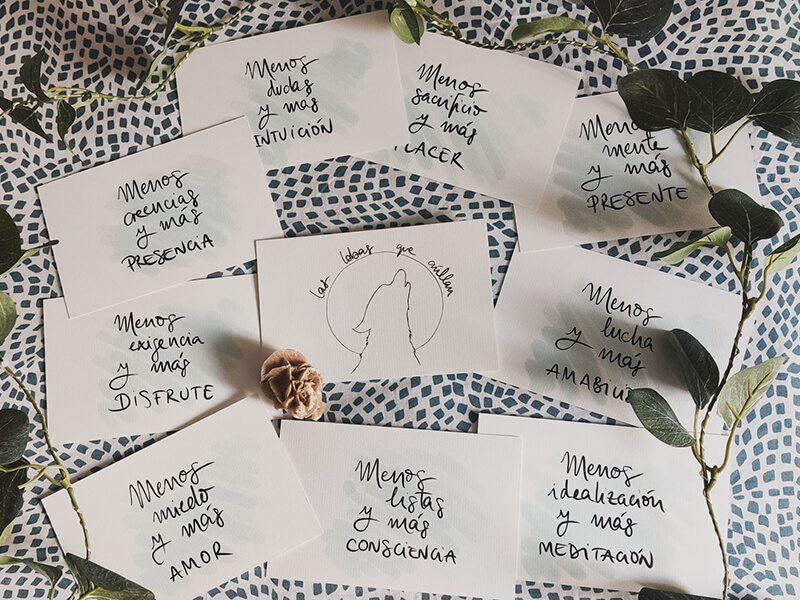 Menos
dudas
y más
INTUICIÓN
Menos
sacrificio
y más
PLACER
Menos
mente
y más
PRESENTE
Menos
creencias
y más
PRESENCIA
las lobas que aúllan
Menos
exigencia
y más
DISFRUTE
Menos
lucha
y más
Menos
miedo
y más
AMOR
Menos
listas
y más
CONSCIENCIA
Menos
idealización
y más
MEDITACIÓN